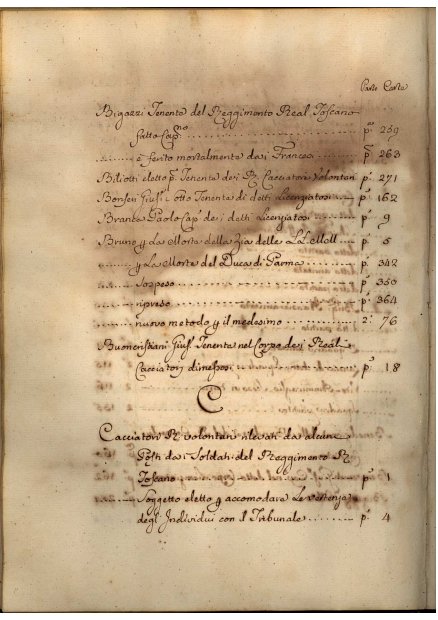 Parte Carte
Bigazzi Tenente del Reggimento Real Toscano
fatto Cap.no ........ p.a 259
...... è ferito mortalmente dai Francesi ... p.a 263
Biliotti eletto p.o Tenente dei R. Cacciatori Volontari p.a 271
Bonferi Gius.e Sotto Tenente di detti Licenziatosi ... p.a 162
Brance Paolo Cap. dei detti Licenziatosi ... p.a 9
Bruno p la Morte della Zia delle LL. MM. ... p.a 5
...... p la Morte del Duca di Parma ... p.a 342
...... sospeso ........ p.a 350
...... ripreso ........ p.a 364
...... nuovo metodo p il medesimo ... 2.a 76
Buoncristiani Gius.e Tenente nel Corpo dei Reali
Cacciatori dimessosi ... p.a 18
C
Cacciatori R. Volontari rilevati da alcuni
Posti dai Soldati del Reggimento R.
Toscano ........ p.a 1
...... Soggetto eletto p accomodare le vertenze
degl'Individui con l Tribunale ........ p.a 4